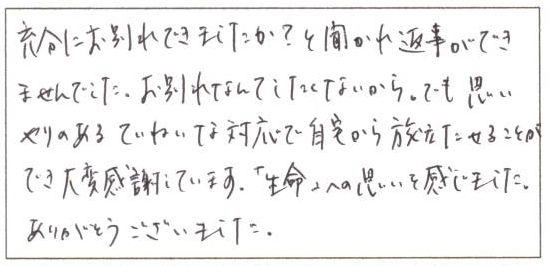 充分にお別れできましたか？と聞かれ返事ができ
ませんでした。お別れなんてしたくないから。でも思い
やりのあるていねいな対応で自宅から旅立たせることが
でき大変感謝しています。「生命」への思いを感じました。
ありがとうございました。